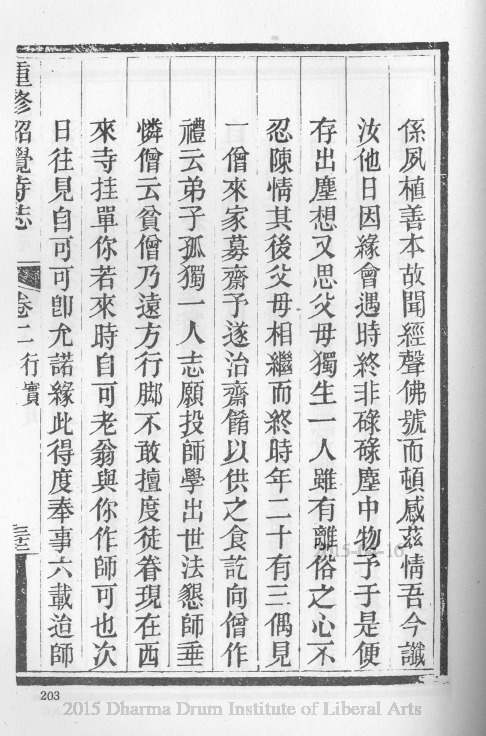 係夙植善本故聞經聲佛號而頓感茲情吾今讖
汝他日因緣會遇時終非碌碌塵中物予于是便
存出塵想又思父母獨生一人雖有離俗之心不
忍陳情其後父母相繼而終時年二十有三偶見
一僧來家募齋予遂治齋餚以供之食訖向僧作
禮云弟子孤獨一人志願投師學出世法懇師垂
憐僧云貧僧乃遠方行脚不敢擅度徒眷現在西
來寺挂單你若來時自可老翁與你作師可也次
日往見自可可即允諾緣此得度奉事六載迨師
重修昭覺寺志 卷二 行實
203
2015 Dharma Drum Institute of Liberal Arts